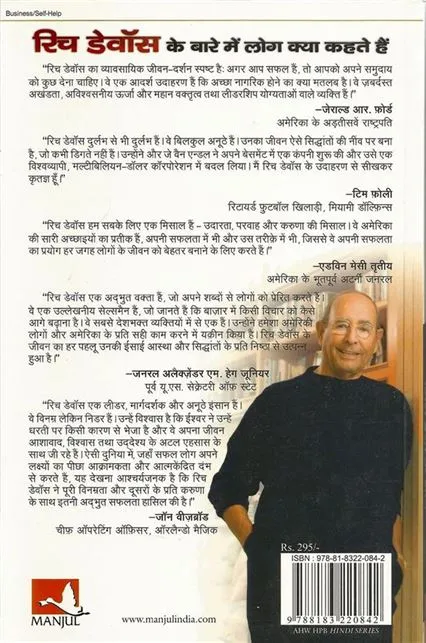 Business/Self-Help
रिच डेवॉस के बारे में लोग क्या कहते हैं
“रिच डेवॉस का व्यावसायिक जीवन-दर्शन स्पष्ट है: अगर आप सफल हैं, तो आपको अपने समुदाय
को कुछ देना चाहिए। वे एक आदर्श उदाहरण हैं कि अच्छा नागरिक होने का क्या मतलब है। वे ज़बर्दस्त
अखंडता, अविश्वसनीय ऊर्जा और महान वक्तृत्व तथा लीडरशिप योग्यताओं वाले व्यक्ति हैं।”
–जेराल्ड आर. फ़ोर्ड
अमेरिका के अड़तीसवें राष्ट्रपति
“रिच डेवॉस दुर्लभ से भी दुर्लभ हैं। वे बिलकुल अनूठे हैं। उनका जीवन ऐसे सिद्धांतों की नींव पर बना
है, जो कभी डिगते नहीं हैं। उन्होंने और जे वैन एन्डल ने अपने बेसमेंट में एक कंपनी शुरू की और उसे एक
विश्वव्यापी, मल्टीबिलियन-डॉलर कॉरपोरेशन में बदल लिया। मैं रिच डेवॉस के उदाहरण से सीखकर
कृतज्ञ हूँ।”
–टिम फ़ोली
रिटायर्ड फुटबॉल खिलाड़ी, मियामी डॉल्फ़िन्स
“रिच डेवॉस हम सबके लिए एक मिसाल हैं – उदारता, परवाह और करुणा की मिसाल। वे अमेरिका
की सारी अच्छाइयों का प्रतीक हैं, अपनी सफलता में भी और उस तरीक़े में भी, जिससे वे अपनी सफलता
का प्रयोग हर जगह लोगों के जीवन को बेहतर बनाने के लिए करते हैं।”
–एडविन मेसी तृतीय
अमेरिका के भूतपूर्व अटर्नी जनरल
“रिच डेवॉस एक अद्भुत वक्ता हैं, जो अपने शब्दों से लोगों को प्रेरित करते हैं।
वे एक उल्लेखनीय सेल्समैन हैं, जो जानते हैं कि बाज़ार में किसी विचार को कैसे
आगे बढ़ाना है। वे सबसे देशभक्त व्यक्तियों में से एक हैं। उन्होंने हमेशा अमेरिकी
लोगों और अमेरिका के प्रति सही काम करने में यक़ीन किया है। रिच डेवॉस के
जीवन का हर पहलू उनकी ईसाई आस्था और सिद्धांतों के प्रति निष्ठा से उत्पन्न
हुआ है।”
–जनरल अलैक्ज़ेंडर एम. हेग जूनियर
पूर्व यू.एस. सेक्रेटरी ऑफ़ स्टेट
“रिच डेवॉस एक लीडर, मार्गदर्शक और अनूठे इंसान हैं।
वे विनम्र लेकिन निडर हैं। उन्हें विश्वास है कि ईश्वर ने उन्हें
धरती पर किसी कारण से भेजा है और वे अपना जीवन
आशावाद, विश्वास तथा उद्देश्य के अटल एहसास के
साथ जी रहे हैं। ऐसी दुनिया में, जहाँ सफल लोग अपने
लक्ष्यों का पीछा आक्रामकता और आत्मकेंद्रित दंभ
से करते हैं, यह देखना आश्चर्यजनक है कि रिच
डेवॉस ने पूरी विनम्रता और दूसरों के प्रति करुणा
के साथ इतनी अद्भुत सफलता हासिल की है।”
–जॉन वीज़ब्रॉड
चीफ़ ऑपरेटिंग ऑफ़िसर, ऑरलैन्डो मैजिक
Rs. 295/-
ISBN 978-81-8322-084-2
9 788183 220842
AHW HPB HINDI SERIES
MANJUL
www.manjulindia.com